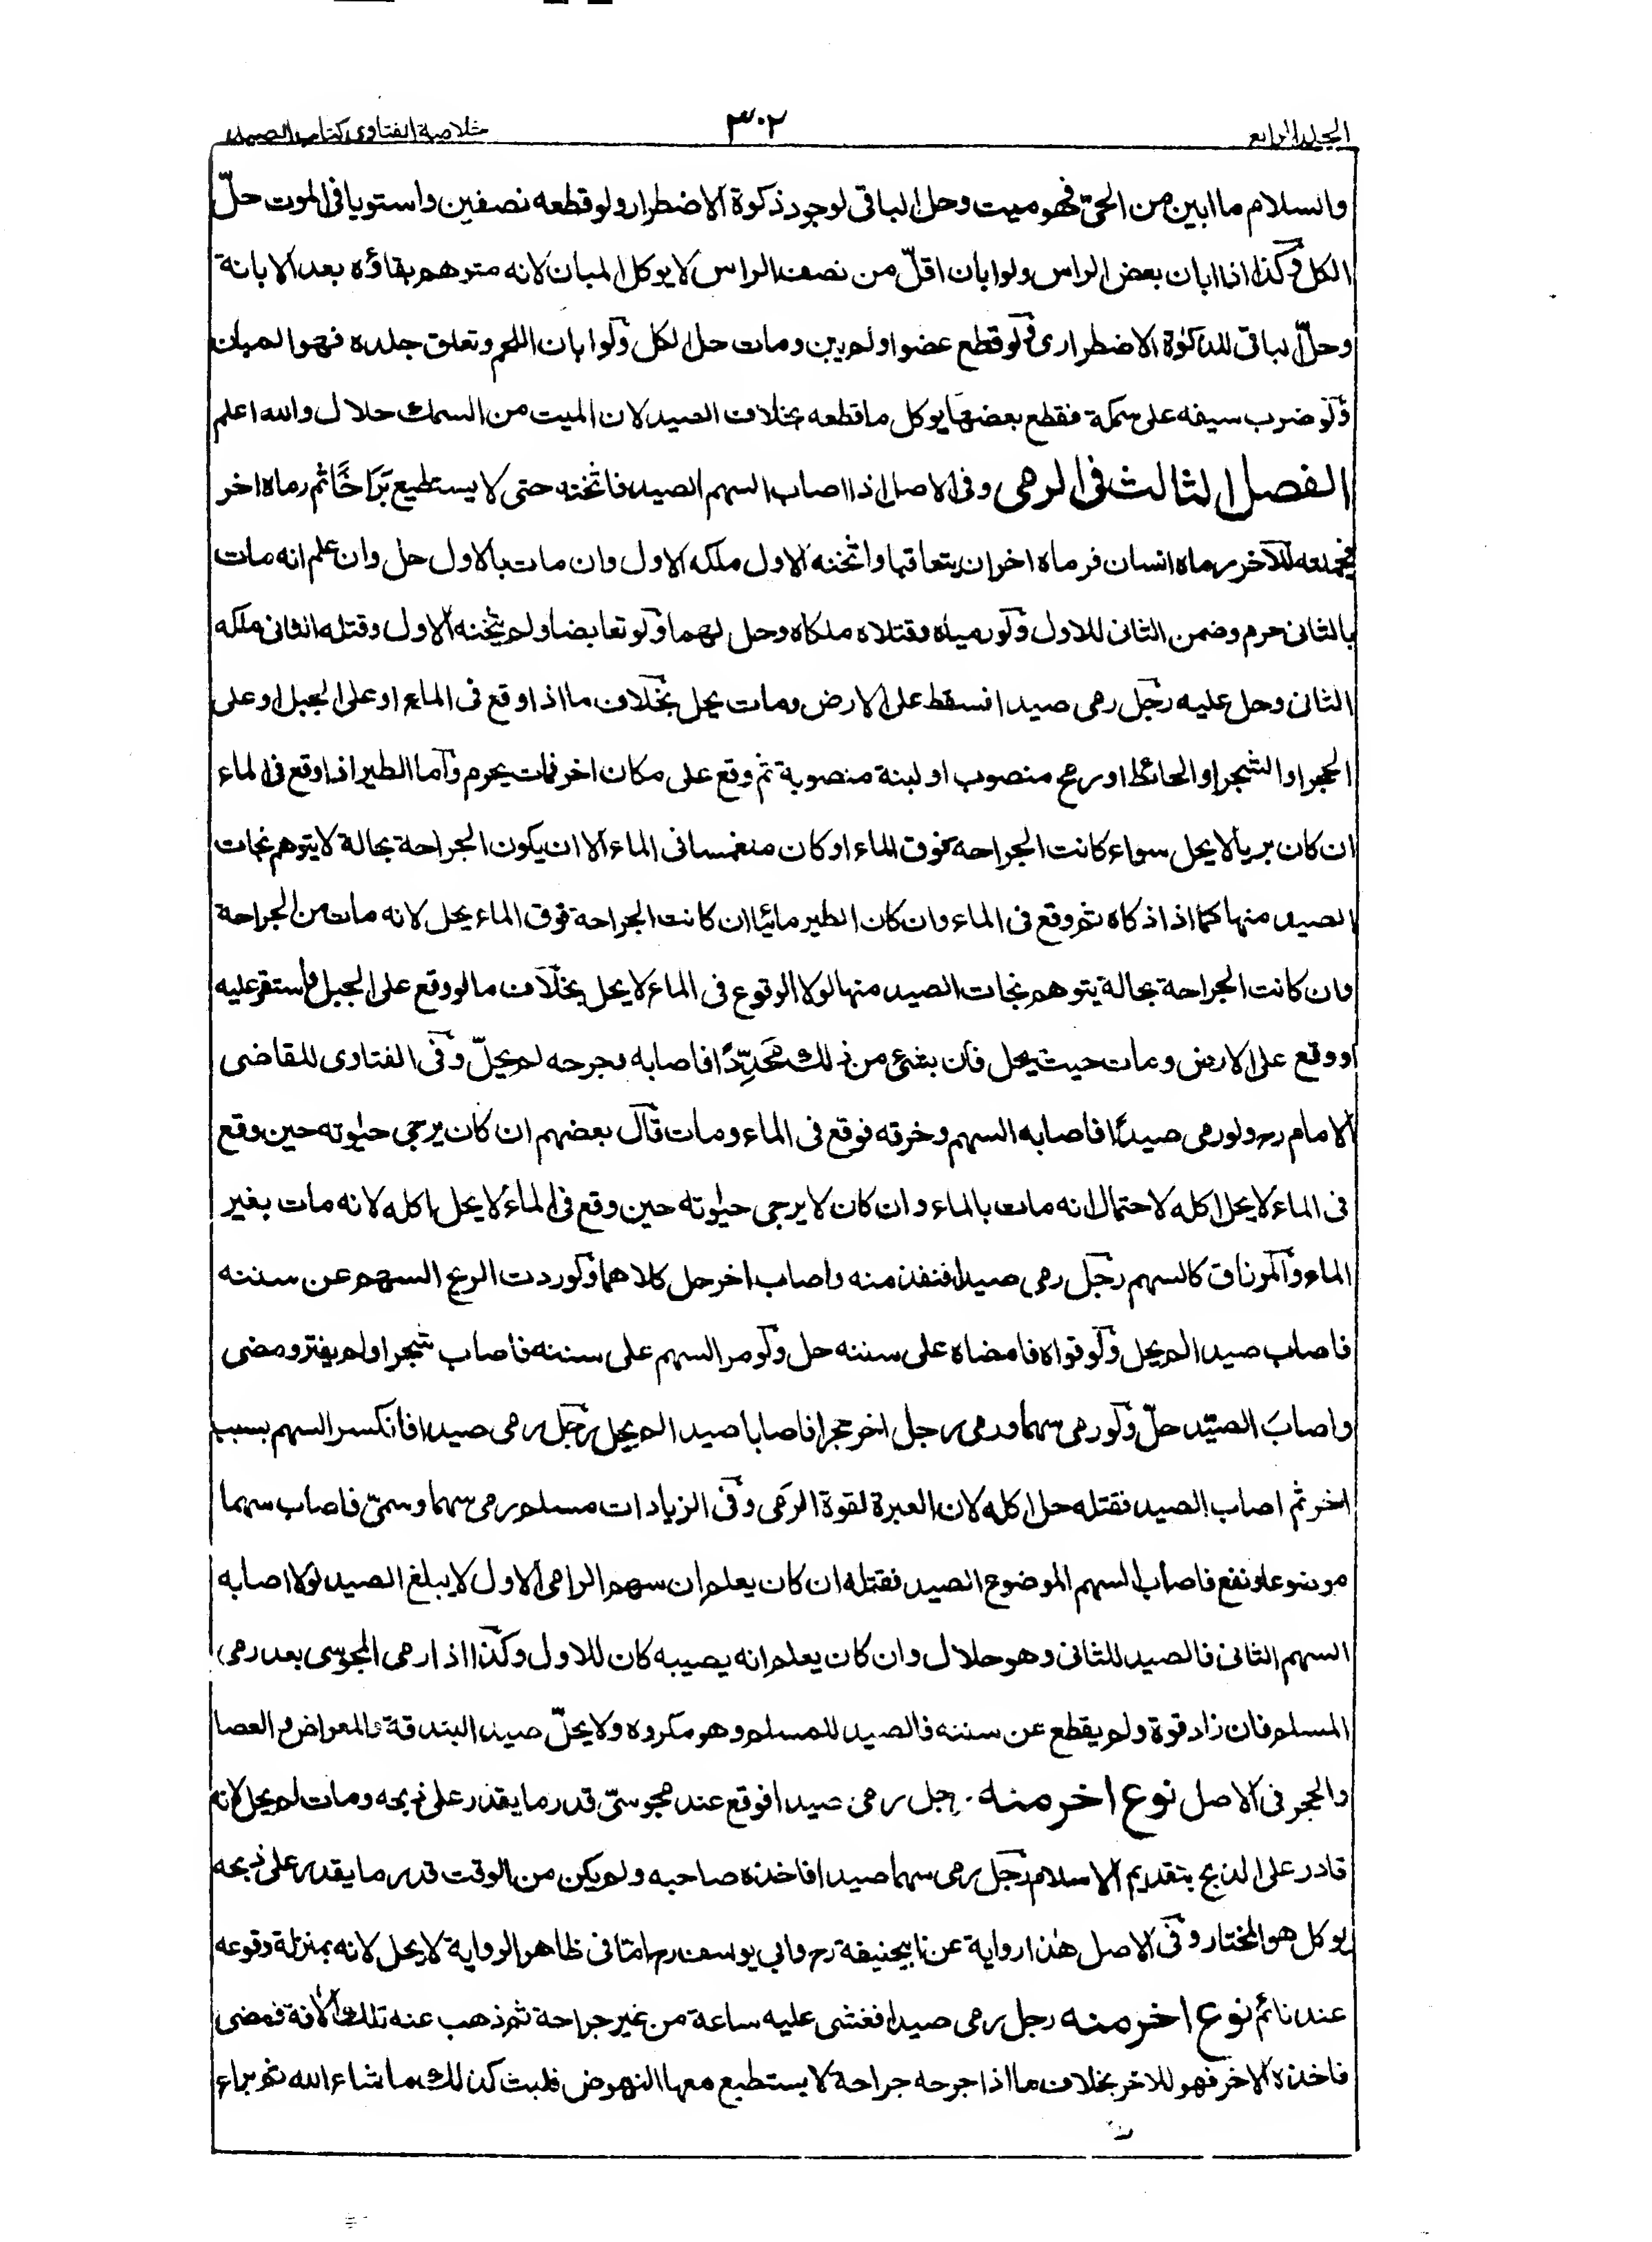 الجلد الرابع
٣٠٢
خلاصة الفتاوى كتاب الصيد
والسلام ما ابين من الحيّ فهو ميت وحل الباقي لوجود ذكوة الاضطرار ولو قطعه نصفين واستويا فى الموت حلّ
الكل وكذا اذا ابان بعض الراس ولو ابان اقلّ من نصف الراس لا يوكل المبان لانه متوهم بقاؤه بعد الابانة
وحلّ الباقى للذكوة الاضطرارى ولو قطع عضوا ولم يبن ومات حل الكل ولو ابان اللحم وتعلق جلده فهو المبان
ولو ضرب سيفه على سمكة فقطع بعضها يوكل ما قطعه بخلاف الصيد لان الميت من السمك حلال والله اعلم
الفصل الثالث فى الرمى وفى الاصل اذا اصاب السهم الصيد فاثخنه حتى لا يستطيع بَرَاحًا ثم رماه اخر
رماه انسان فرماه اخر ان يتعاقبا واثخنه الاول ملكه الاول وان مات بالاول حل وان علم انه مات
بالثانى حرم وضمن الثانى للاول ولو رمياه وقتلاه ملكاه وحل لهما ولو تعاقبا ولم يثخنه الاول وقتله الثانى ملكه
الثانى وحل عليه رجل رمى صيدا فسقط على الارض ومات يحل بخلاف ما اذا وقع فى الماء او على الجبل او على
الحجر او الشجر او الحائط او رمح منصوب او لبنة منصوبة ثم وقع على مكان اخر فمات يحرم واما الطير اذا وقع فى الماء
ان كان بريا لا يحل سواء كانت الجراحة فوق الماء او كان منغمسا فى الماء الا ان يكون الجراحة بحالة لا يتوهم نجات
الصيد منها كما اذا ذكاه ثم وقع فى الماء وان كان الطير مائيا ان كانت الجراحة فوق الماء يحل لانه مات من الجراحة
وان كانت الجراحة بحالة يتوهم نجات الصيد منها لولا الوقوع فى الماء لا يحل بخلاف ما لو وقع على الجبل واستقر عليه
او وقع على الارض ومات حيث يحل فان بشئ من ذلك مُحَدِّدًا فاصابه وجرحه لم يحلّ وفى الفتاوى للقاضى
الامام رح ولو رمى صيدًا فاصابه السهم وخرقه فوقع فى الماء ومات قال بعضهم ان كان يرجى حيٰوته حين وقع
فى الماء لا يحل اكله لاحتمال انه مات بالماء وان كان لا يرجى حيٰوته حين وقع فى الماء لا يحل اكله لانه مات بغير
الماء والمزراق كالسهم رجل رمى صيدا فنفذ منه واصاب اخر حل كلاهما ولو ردت الريح السهم عن سننه
فاصاب صيدا لم يحل ولو قواه فامضاه على سننه حل ولو مر السهم على سننه فاصاب شجرا ولم يفتر ومضى
واصابَ الصيّد حلّ ولو رمى سهما ورمى رجل اخر حجرا فاصابا صيدا لم يحل رجل رمى صيدا فانكسر السهم بسبب
اخر ثم اصاب الصيد فقتله حل اكله لان العبرة لقوة الرَمى وفى الزيادات مسلم رمى سهما وسمىّ فاصاب سهما
موضوعا فاصاب السهم الموضوع الصيد فقتله ان كان يعلم ان سهم الرامى الاول لا يبلغ الصيد لولا اصابه
السهم الثانى فالصيد للثانى وهو حلال وان كان يعلم انه يصيبه كان للاول وكذا اذا رمى المجوسى بعد رمى
المسلم فان زاد قوة ولم يقطع عن سننه فالصيد للمسلم وهو مكروه ولا يحلّ صيد البندقة والمعراض والعصا
والحجر فى الاصل نوع اخر منه رجل رمى صيدا فوقع عند مجوسىّ قدر ما يقدر على ذبحه ومات لم يحل لانه
قادر على الذبح بتقديم الاسلام رجل رمى سهما صيدا فاخذه صاحبه ولم يكن من الوقت قدر ما يقدر على ذبحه
يوكل هو المختار وفى الاصل هٰذا رواية عن ابيحنيفة رح وابى يوسف رح امّا فى ظاهر الرواية لا يحل لانه بمنزلة وقوعه
عند نائم نوع اخر منه رجل رمى صيدا فغشى عليه ساعة من غير جراحة ثم ذهب عنه تلك الآفة فمضى
فاخذه الاخر فهو للاخر بخلاف ما اذا جرحه جراحة لا يستطيع معها النهوض فلبث كذلك ما شاء الله ثم براء